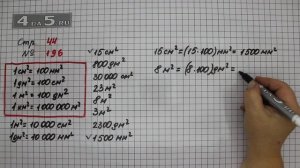 4a5.ru
Стр 44
№ 196
1 см² = 100 мм²
1 дм² = 100 см²
1 м² = 100 дм²
1 км² = 1000 000 м²
1м² = 10 000 см²
1дм² = 10 000 мм²
✓ 15 см²
800 дм²
30 000 см²
23 м²
8 м²
3 м²
2300 дм²
✓ 1500 мм²
15 см² = (15·100) мм² = 1500 мм²
8 м² = (8·100) дм² =